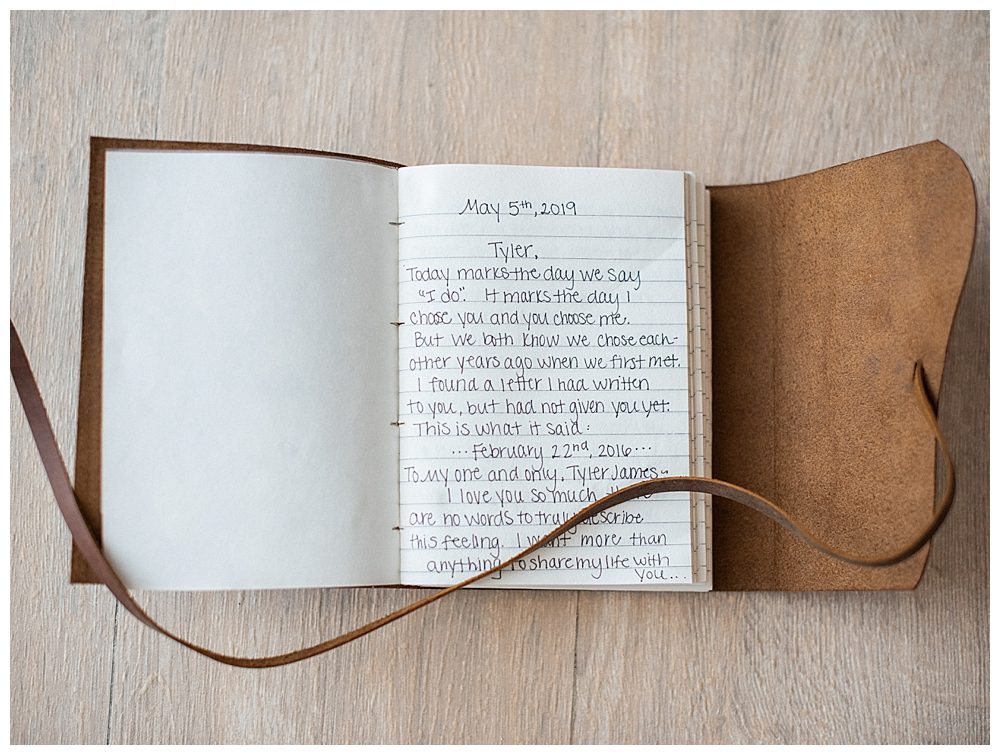 May 5th, 2019
Tyler,
Today marks the day we say
"I do". It marks the day I
chose you and you choose me.
But we both know we chose each-
other years ago when we first met.
I found a letter I had written
to you, but had not given you yet.
This is what it said:
...February 22nd, 2016...
To my one and only, Tyler James~
I love you so much, there
are no words to truly describe
this feeling. I want more than
anything to share my life with
you...